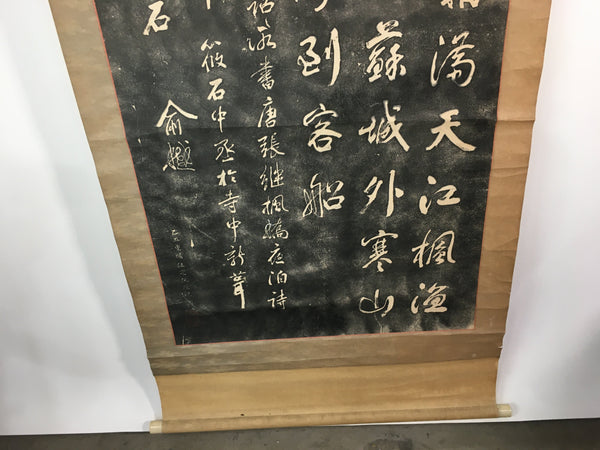 滿天江楓漁
蘇城外寒山
到客船
詔所書唐張繼楓橋夜泊詩
筱石中丞於寺中新葺
石
俞樾